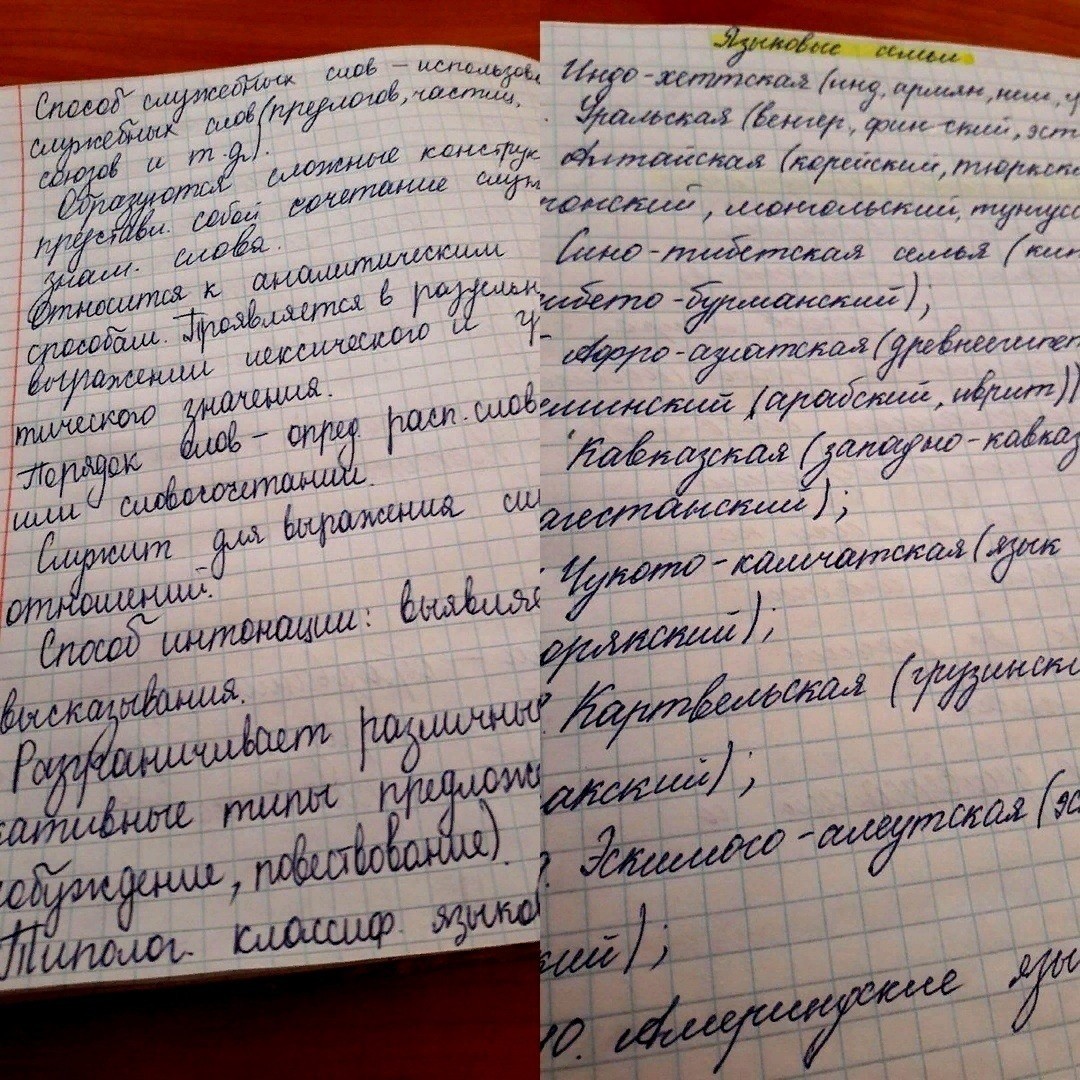 Способ служебных слов – использова
служебных слов (предлогов, частиц,
союзов и т.д.).
Образуются сложные конструк
представл. собой сочетание служ
знам. слова.
Относится к аналитическим
способам. Проявляется в раздельн
выражении лексического и гр
тического значения.
Порядок слов – опред. расп. слов
или словосочетании.
Служит для выражения си
отношений.
Способ интонации: выявляе
высказывания.
Разграничивает различны
кативные типы предлож
обуждение, повествование).
Типолог. классиф. языко
Языковые семьи
Индо-хеттская (инд, армян, нем,
Уральская (венгер, фин-ский, эст
Алтайская (корейский, тюркски
понский, монгольский, тунгусс
Сино-тибетская семья (кит
ибето-бурманский);
Афро-азиатская (древнеегипет
емитский (арабский, иврит))
Кавказская (западно-кавказ
агестанский);
Чукото-камчатская (язык
орякский);
Картвельская (грузински
анский);
Эскимого-алеутская (эс
кий);
10. Америндские язы